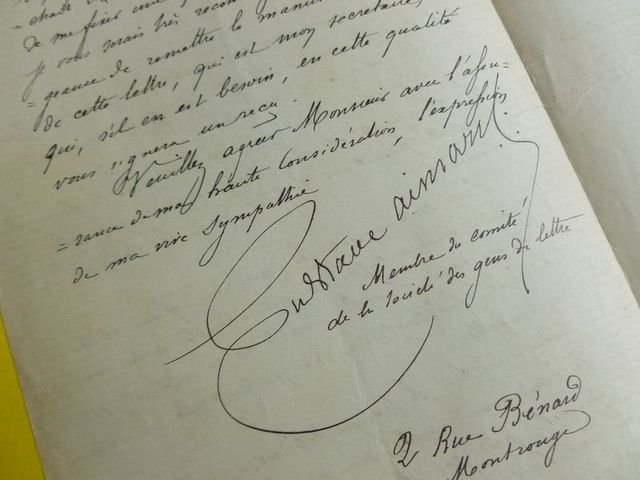 de me fixer une
je vous serais très recon
= geance de remettre le manus
de cette lettre, qui est mon secretaire,
qui, s'il en est besoin, en cette qualité
vous signera un reçu.
Veuillez agréer Monsieur avec l'assu=
=rance de ma haute considération, l'expression
de ma vive sympathie
Gustave aimard
Membre du comité
de la Société des gens de lettre
2 Rue Bénard
Montrouge